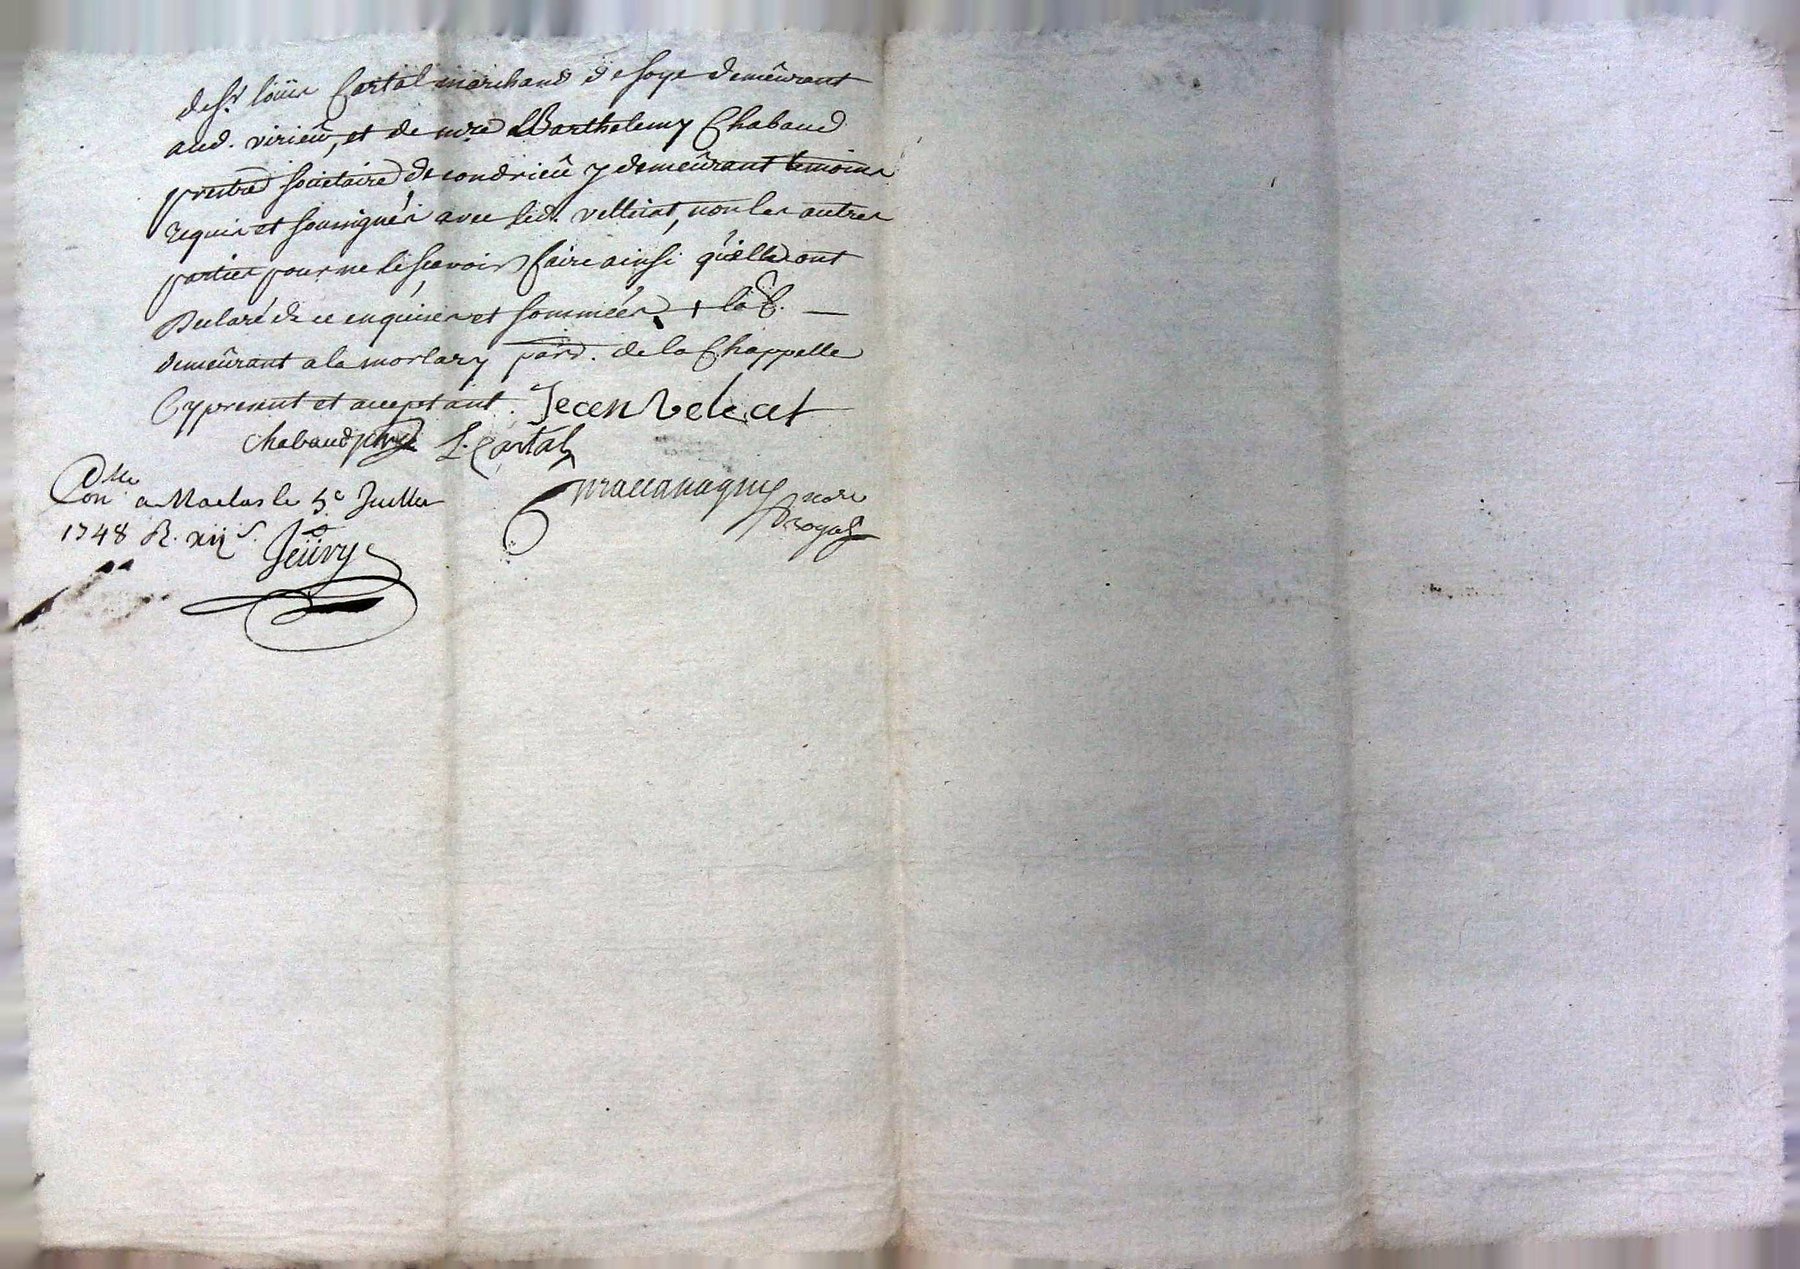 de sr. loüis Cartal marchand de soye demeûrant
aud. virieü, et de mre Barthelemy Chabaud
prestre societaire de condrieü y demeûrant temoins
requis et soussignés avec led. vellicat, non les autres
parties pour ne le scavoir faire ainsi qu'elles ont
Declaré de ce enquises et sommées +
demeûrant a la morlary parr. de la Chappelle
Cy present et acceptant. Jean Velecat
chabaud ptre L. Cartal
Conlle a Maclas le 5e Juillet
1748 R. xii s. Jeüvry
nore
Royal